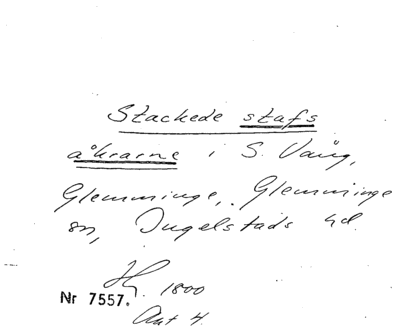 Stackede stafs
åkrarne i S. Vång,
Glemminge, Glemminge
sn, Ingelstads hd.
1800
Nr 7557.
Akt 4.